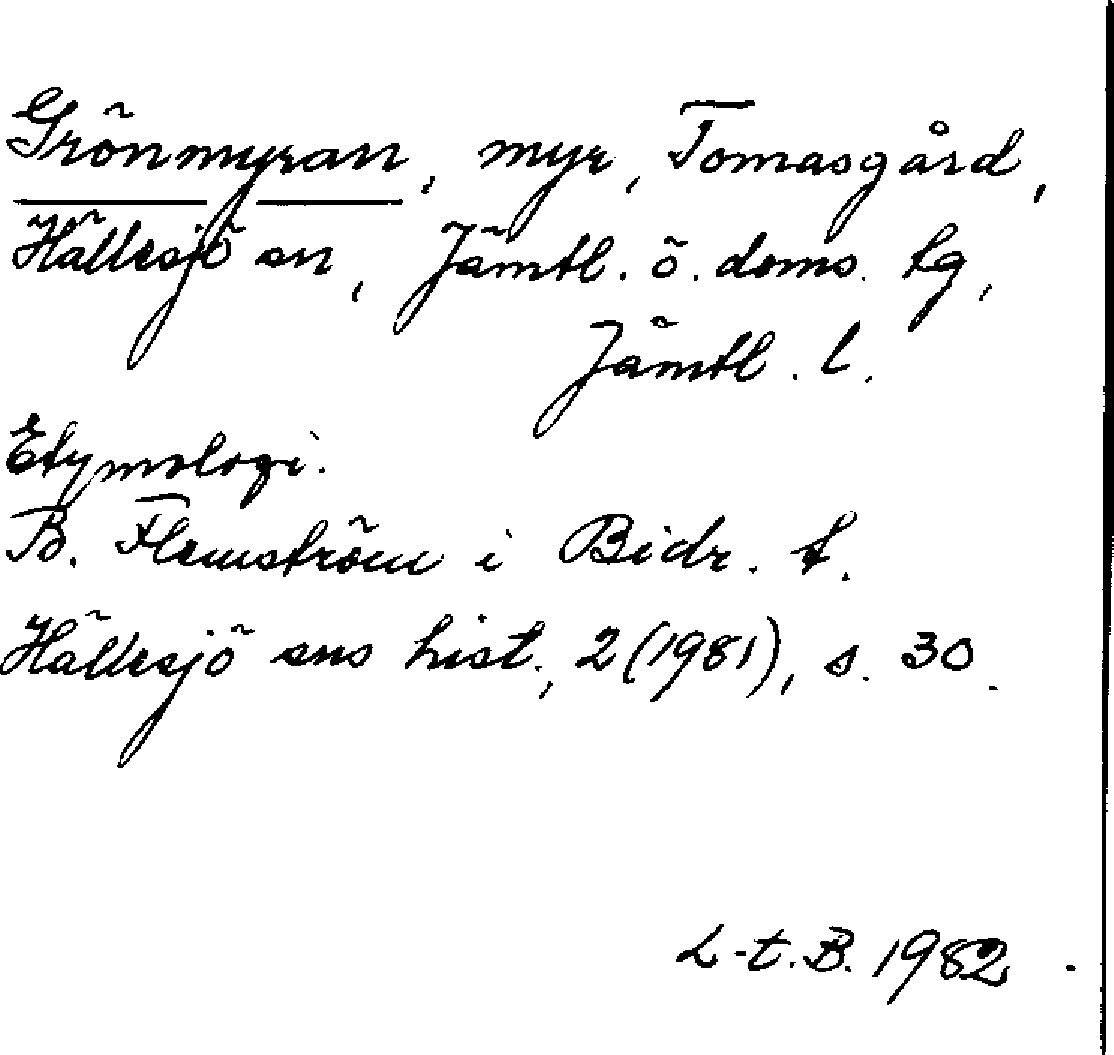 Grönmyran, myr, Tomasgård,
Hällesjö sn, Jämtl. ö. doms. tg,
Jämtl. l.
Etymologi.
B. Flemström i Bidr. t.
Hällesjö sns hist., 2 (1981), s. 30.
L-t. B. 1982